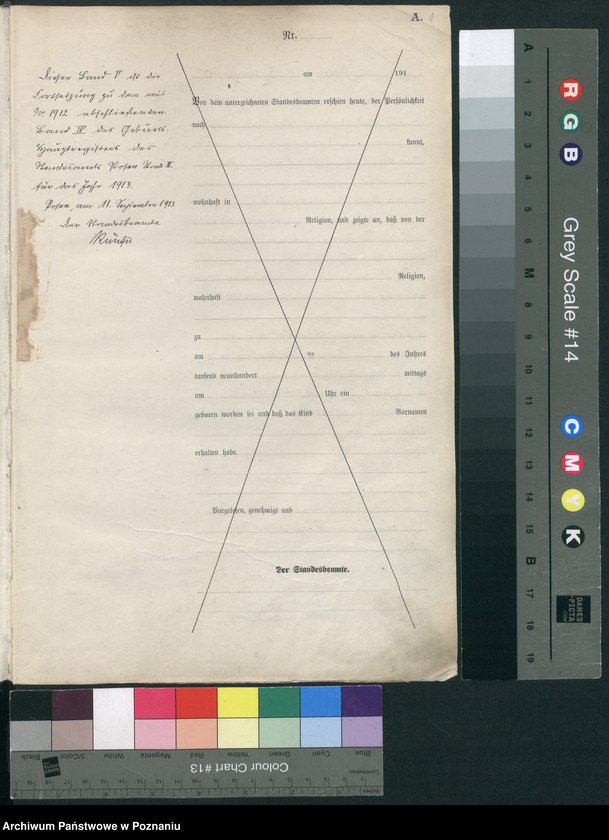 A. 1
Nr.
am 191
Dieser Band V ist die
Fortsetzung zu dem mit
Nr. 1912 abschließenden
Band IV des Geburts-
Hauptregisters des
Standesamts Posen
für das Jahr 1913.
Posen, am 11. September 1913
Der Standesbeamte
Vor dem unterzeichneten Standesbeamten erschien heute, der Persönlichkeit
nach
kannt,
wohnhaft in
Religion, und zeigte an, daß von der
Religion,
wohnhaft
zu
am des Jahres
tausend neunhundert mittags
um Uhr ein
geboren worden sei und daß das Kind Vornamen
erhalten habe.
Vorgelesen, genehmigt und
Der Standesbeamte.
A 1 2 3 4 5 6 M 8 9 10 11 12 13 14 15 B 17 18 19
R G B
Grey Scale #14
C M Y K
DANES
-PICTA
.COM
Blue Cyan Green Yellow Red Magenta White 3/Color Black
Colour Chart #13
Archiwum Państwowe w Poznaniu